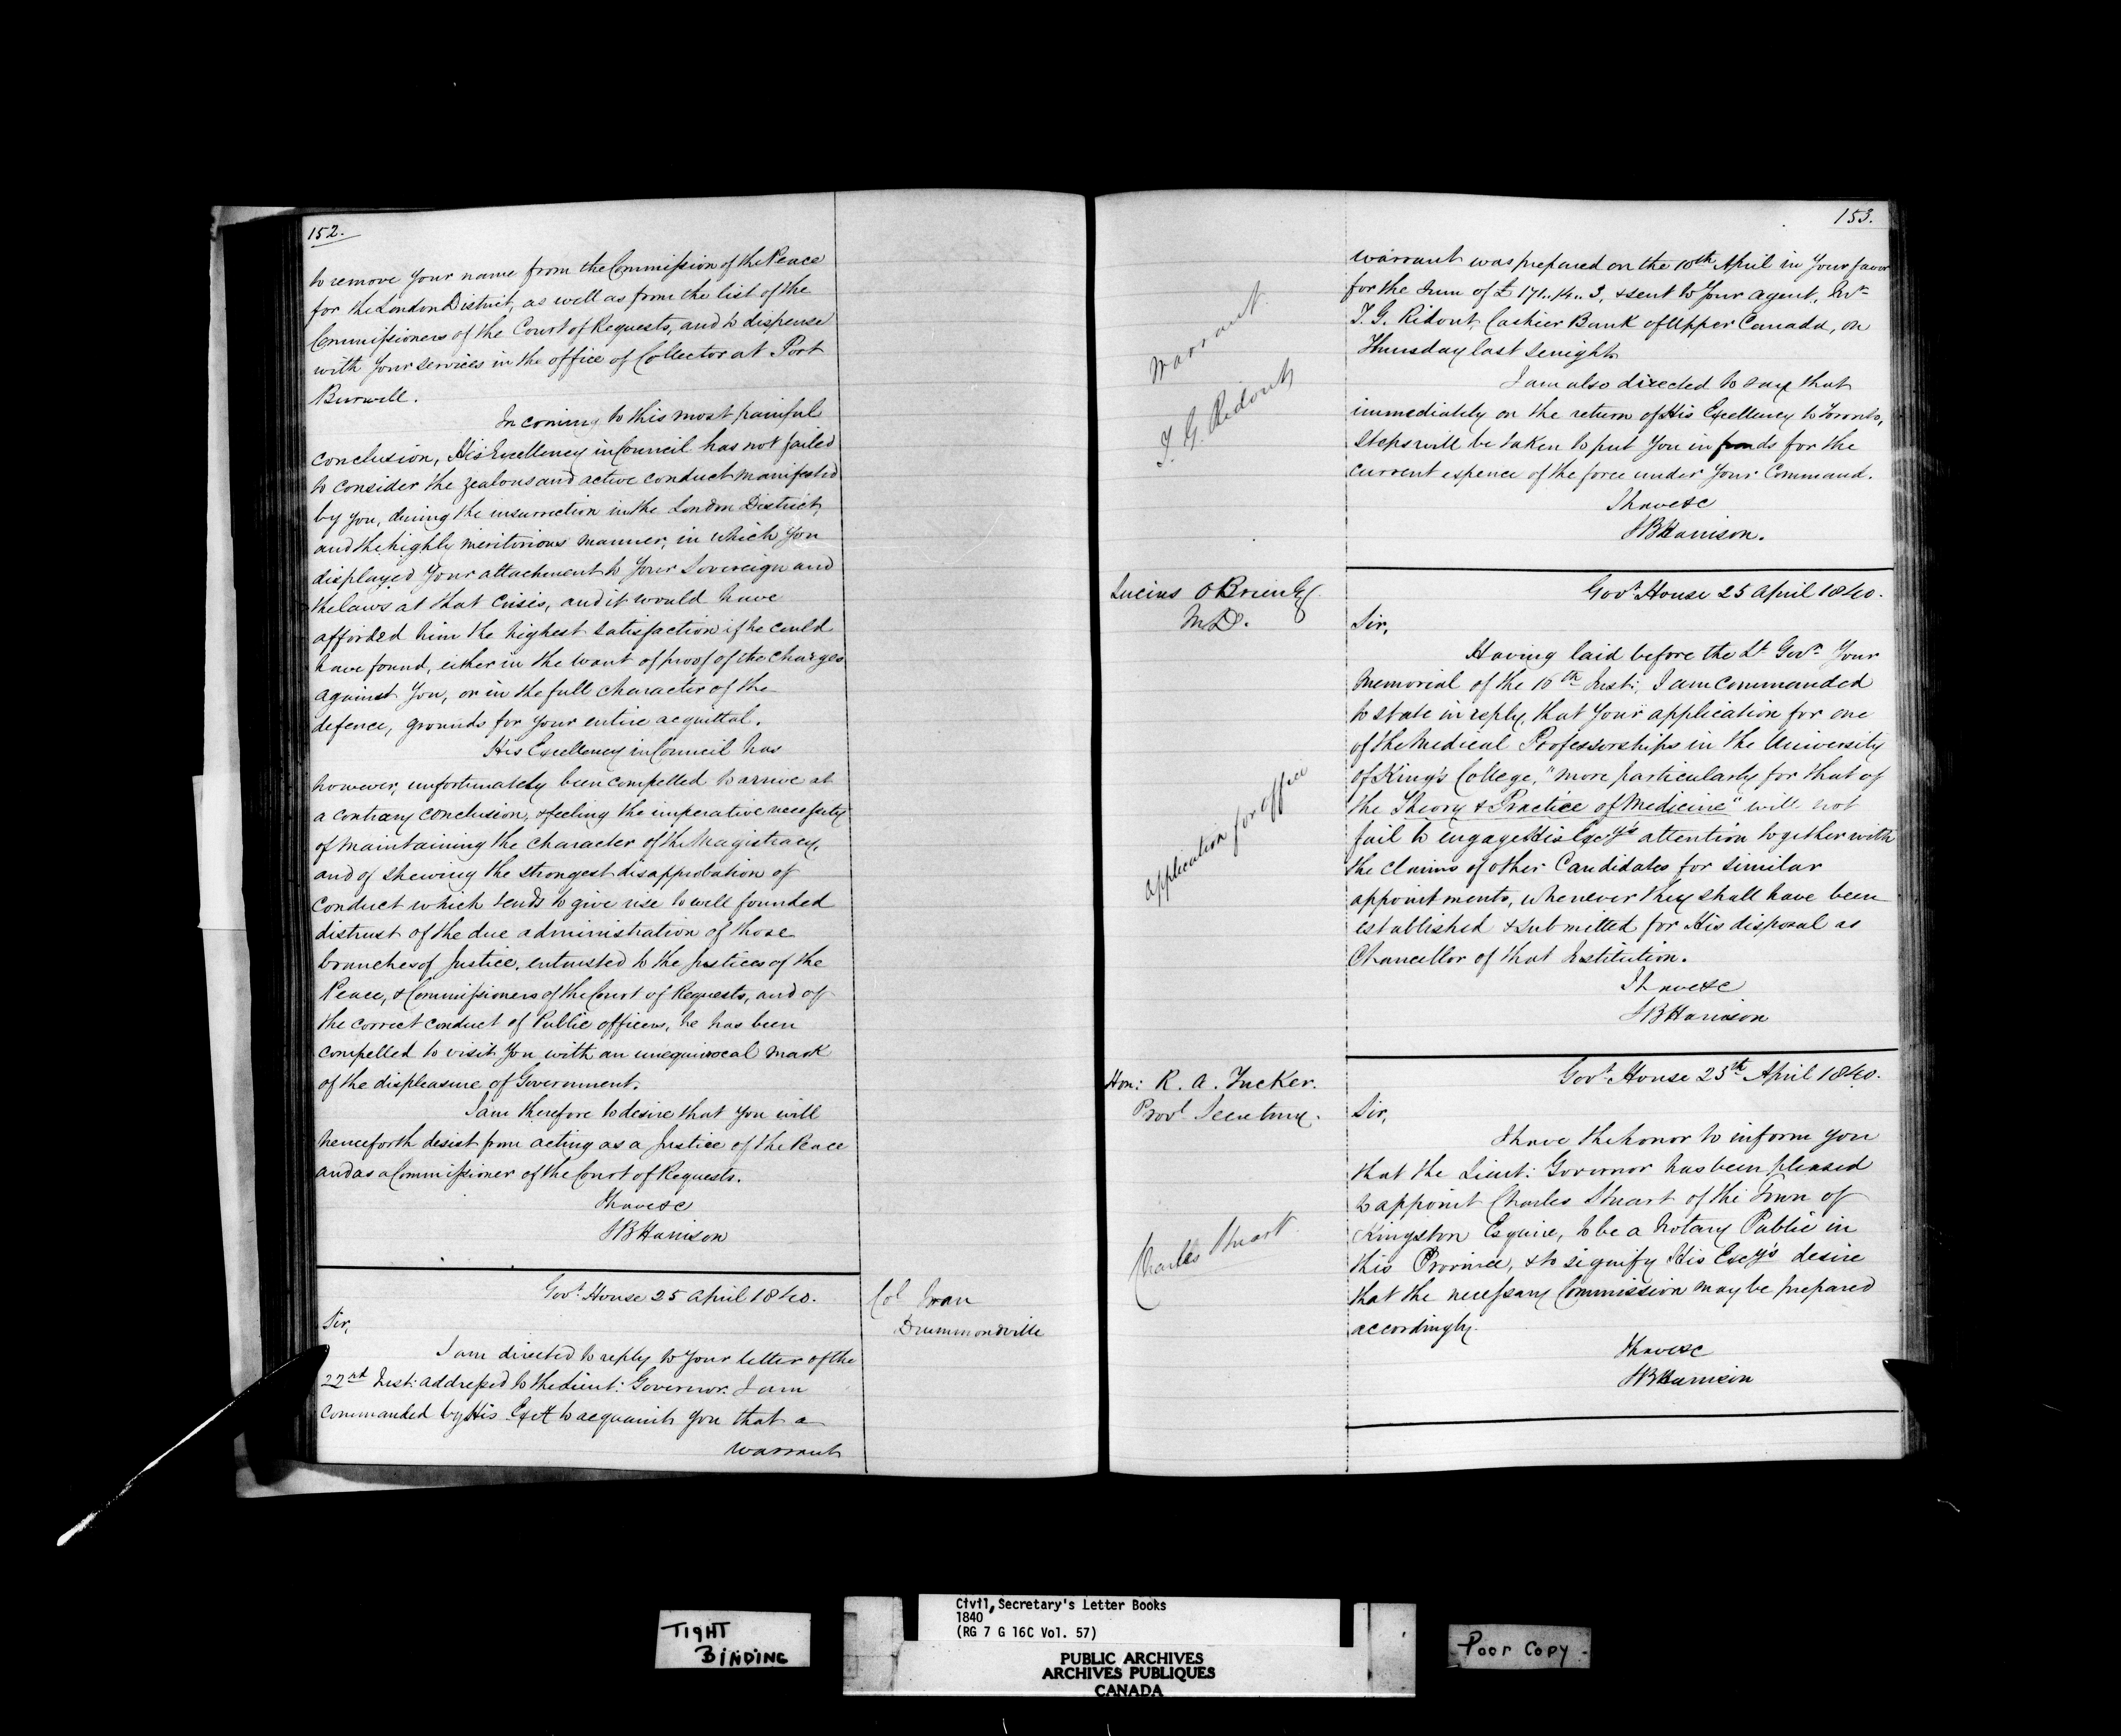 152.
to remove your name from the Commission of the Peace
for the London District, as well as from the list of the
Commissioners of the Court of Requests, and to dispense
with your services in the office of Collector at Port
Burwell.
In coming to this most painful
conclusion, His Excellency in Council has not failed
to consider the zealous and active conduct manifested
by you, during the insurrection in the London District,
and the highly meritorious manner, in which you
displayed your attachment to your Sovereign and
the laws at that Crisis, and it would have
afforded him the highest satisfaction if he could
have found, either in the want of proof of the charges
against you, or in the full character of the
defence, grounds for your entire acquittal.
His Excellency in Council has
however, unfortunately been compelled to arrive at
a contrary conclusion, & feeling the imperative necessity
of maintaining the character of the Magistracy,
and of shewing the strongest disapprobation of
conduct which tends to give rise to well founded
distrust of the due administration of those
branches of Justice, entrusted to the Justices of the
Peace, & Commissioners of the Court of Requests, and of
the correct conduct of Public officers, he has been
compelled to visit you with an unequivocal mark
of the displeasure of Government.
I am therefore to desire that you will
henceforth desist from acting as a Justice of the Peace
and as a Commissioner of the Court of Requests.
I have &c
SB Harrison
Govt. House 25 April 1840.
Col
Drummondville
Sir,
I am directed to reply to your letter of the
22nd Inst: addressed to the Lieut: Governor. I am
commanded by His to acquaint you that a
warrant
153.
warrant was prepared on the 10th April in your favor
for the sum of £ 171..14..3, & sent to your agent,
T. G. Ridout, Cashier Bank of Upper Canada, on
Thursday last senight
I am also directed to say that
immediately on the return of His Excellency to Toronto,
steps will be taken to put you in funds for the
current expence of the force under your Command.
I have &c
SB Harrison.
Warrant
T. G. Ridout
Lucius O Brien Esq.
M.D.
Govt. House 25 April 1840.
Sir,
Having laid before the Lt Govr. your
Memorial of the 10th Inst:, I am commanded
to state in reply, that your application for one
of the Medical Professorships in the University
of King's College, "more particularly for that of
the Theory & Practice of Medicine" will not
fail to engage His Excy's attention together with
the claims of other Candidates for similar
appointments, whenever they shall have been
established & submitted for His disposal as
Chancellor of that Institution.
I have &c
SB Harrison
application for office
Hon: R. A. Tucker.
Provl Secretary.
Govt. House 25th April 1840.
Sir,
I have the honor to inform you
that the Lieut: Governor has been pleased
to appoint Charles Stuart of the Town of
Kingston Esquire, to be a Notary Public in
this Province, & to signify His Excy's desire
that the necessary Commission may be prepared
accordingly.
I have &c
SB Harrison
Charles Stuart
TIGHT
BINDING
Civil Secretary's Letter Books
1840
(RG 7 G 16C Vol. 57)
PUBLIC ARCHIVES
ARCHIVES PUBLIQUES
CANADA
Poor Copy